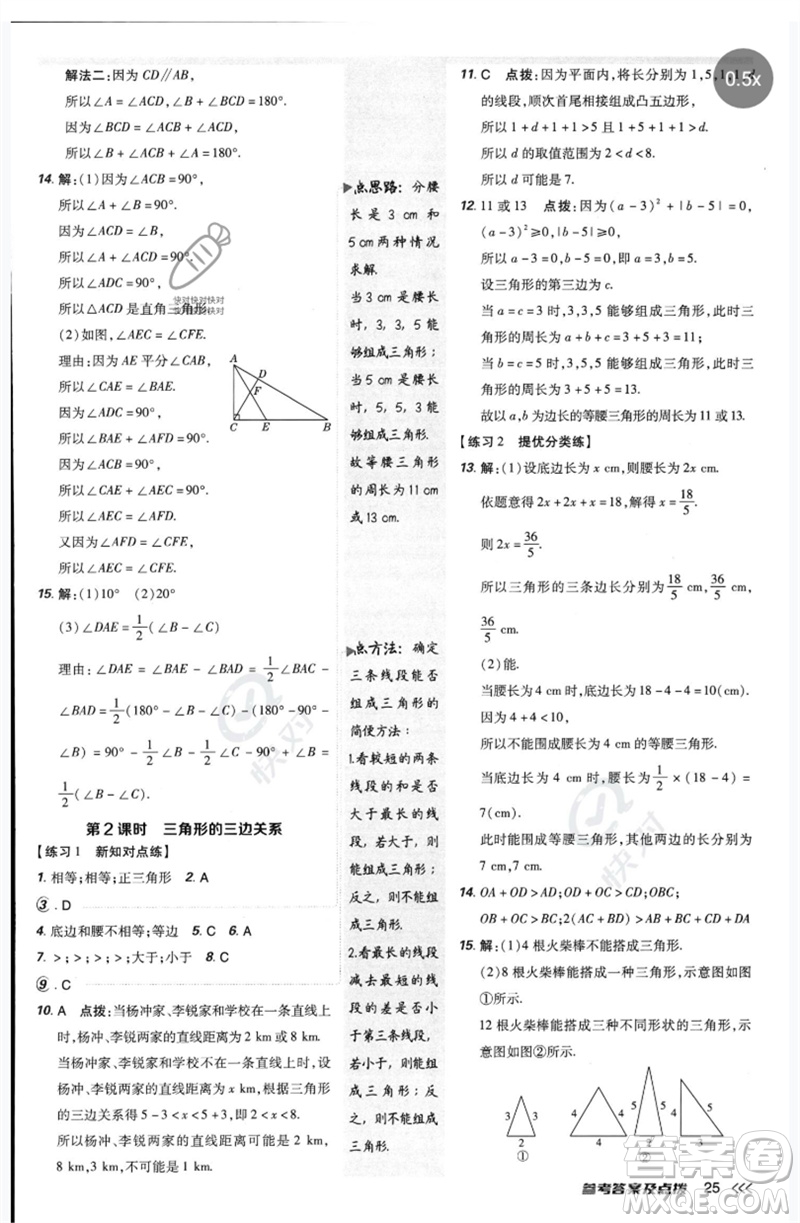 解法二:因为 CD∥AB,
所以∠A=∠ACD,∠B+∠BCD=180°.
因为∠BCD=∠ACB+∠ACD,
所以∠B+∠ACB+∠A=180°.
14. 解:(1)因为∠ACB=90°,
所以∠A+∠B=90°.
因为∠ACD=∠B,
所以∠A+∠ACD=90°.
所以∠ADC=90°.
所以△ACD 是直角三角形.
(2)如图,∠AEC=∠CFE.
理由:因为 AE 平分∠CAB,
所以∠CAE=∠BAE.
因为∠ACD=∠B,
所以∠BAE+∠AFD=90°,
∠CAE+∠AEC=90°.
所以∠AEC=∠AFD.
又因为∠AFD=∠CFE,
所以∠AEC=∠CFE.
A
D
F
C
E
B
15. 解:(1)10° (2)20°
(3)∠DAE=1/2(∠B-∠C)
理由:∠DAE=∠BAE-∠BAD=1/2∠BAC
-∠BAD=1/2(180°-∠B-∠C)-(90°-
∠B)=90°-1/2∠B-1/2∠C-90°+∠B=
1/2(∠B-∠C)
第2课时 三角形的三边关系
【练习1 新知对点练】
1. 相等;相等;正三角形 2. A
3. D
4. 底边和腰不相等;等边 5. C 6. A
7. >;>;>;大于;小于 8. C
9. C
10. A 点拨:当杨冲家、李锐家和学校在一条直线上
时,杨冲、李锐两家的直线距离为 2 km或8 km.
当杨冲家、李锐家和学校不在一条直线上时,设
杨冲、李锐两家的直线距离为 x km,根据三角形
的三边关系得 5-3<x<5+3,即 2<x<8.
所以杨冲、李锐两家的直线距离可能为 2 km,
8 km,3 km,不可能是 1 km.
点思路:分腰
长是 3 cm 和
5 cm 两种情况
求解.
当 3 cm 是腰长
时,3,3,5 能
够组成三角形;
当 5 cm 是腰长
时,5,5,3 能
够组成三角形.
故等腰三角形
的周长为 11 cm
或 13 cm.
点方法:确定
三条线段能否
组成三角形的
简便方法:
1.看较短的两条
线段的和是否
大于最长的线
段,如果大于最
长的线段,则能
组成三角形;反
之,则不能组成
三角形.
2.看最长的线段
减去较短的线段
的差是否小
于第三条线段,
若小于,则能组
成三角形;反
之,则不能组成
三角形.
11. C 点拨:因为平面内,将长分别为 1,5,1,1,d
的线段,顺次首尾相接组成凸五边形,
所以 1+d+1+1>5 且 1+5+1+1>d.
所以 d 的取值范围为 2<d<8.
所以 d 可能是 7.
12. 11 或 13 点拨:因为(a-3)²+|b-5|=0,
(a-3)²≥0,|b-5|≥0,
所以 a-3=0,b-5=0,即 a=3,b=5.
设三角形的第三边为 c.
当 a=c=3 时,3,3,5 能够组成三角形,此时三
角形的周长为 a+b+c=3+5+3=11;
当 b=c=5 时,3,5,5 能够组成三角形,此时三
角形的周长为 3+5+5=13.
故以 a,b 为边长的等腰三角形的周长为 11 或 13.
【练习2 提优分类练】
13. 解:(1)设底边长为 x cm,则腰长为 2x cm.
依题意得 2x+2x+x=18,解得 x=18/5.
则 2x=36/5.
所以三角形的三条边长分别为 18/5 cm,36/5 cm,
36/5 cm.
(2)能.
当腰长为 4 cm 时,底边长为 18-4-4=10(cm).
因为 4+4<10,
所以不能围成腰长为 4 cm 的等腰三角形.
当底边长为 4 cm 时,腰长为 1/2×(18-4)=
7(cm).
此时能围成等腰三角形,其他两边的长分别为
7 cm,7 cm.
14. OA+OD>AD;OD+OC>CD;OBC;
OB+OC>BC;AB+BC+CD+DA
15. 解:(1)4 根火柴棒不能搭成三角形.
(2)8 根火柴棒能搭成一种三角形,示意图如图
①所示.
12 根火柴棒能搭成三种不同形状的三角形,示
意图如图②所示.
3 3
2
①
4 4
4
5 5
2
②
4 5
3
参考答案及点拨 25 <<<
0.5x
快对快对快对
快对
快对
答案圈